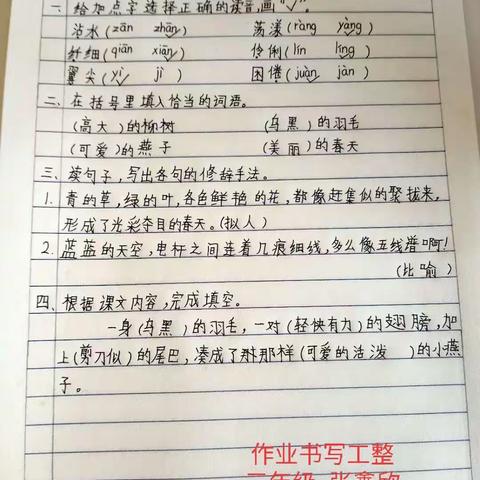 一、给加点字选择正确的读音,画"√"。
沾水(zān zhān) 荡漾(ràng yàng)
纤细(qiān xiān) 伶俐(lín líng)
翼尖(yì jì) 困倦(juàn jàn)
二、在括号里填入恰当的词语。
(高大)的柳树 (乌黑)的羽毛
(可爱)的燕子 (美丽)的春天
三、读句子,写出各句的修辞手法。
1. 青的草,绿的叶,各色鲜艳的花,都像赶集似的聚拢来,
形成了光彩夺目的春天。(拟人)
2. 蓝蓝的天空,电杆之间连着几痕细线,多么像五线谱啊!
(比喻)
四、根据课文内容,完成填空。
一身(乌黑)的羽毛,一对(轻快有力)的翅膀,加
上(剪刀似)的尾巴,凑成了那样(可爱的活泼)的小燕
子。
作业书写工整